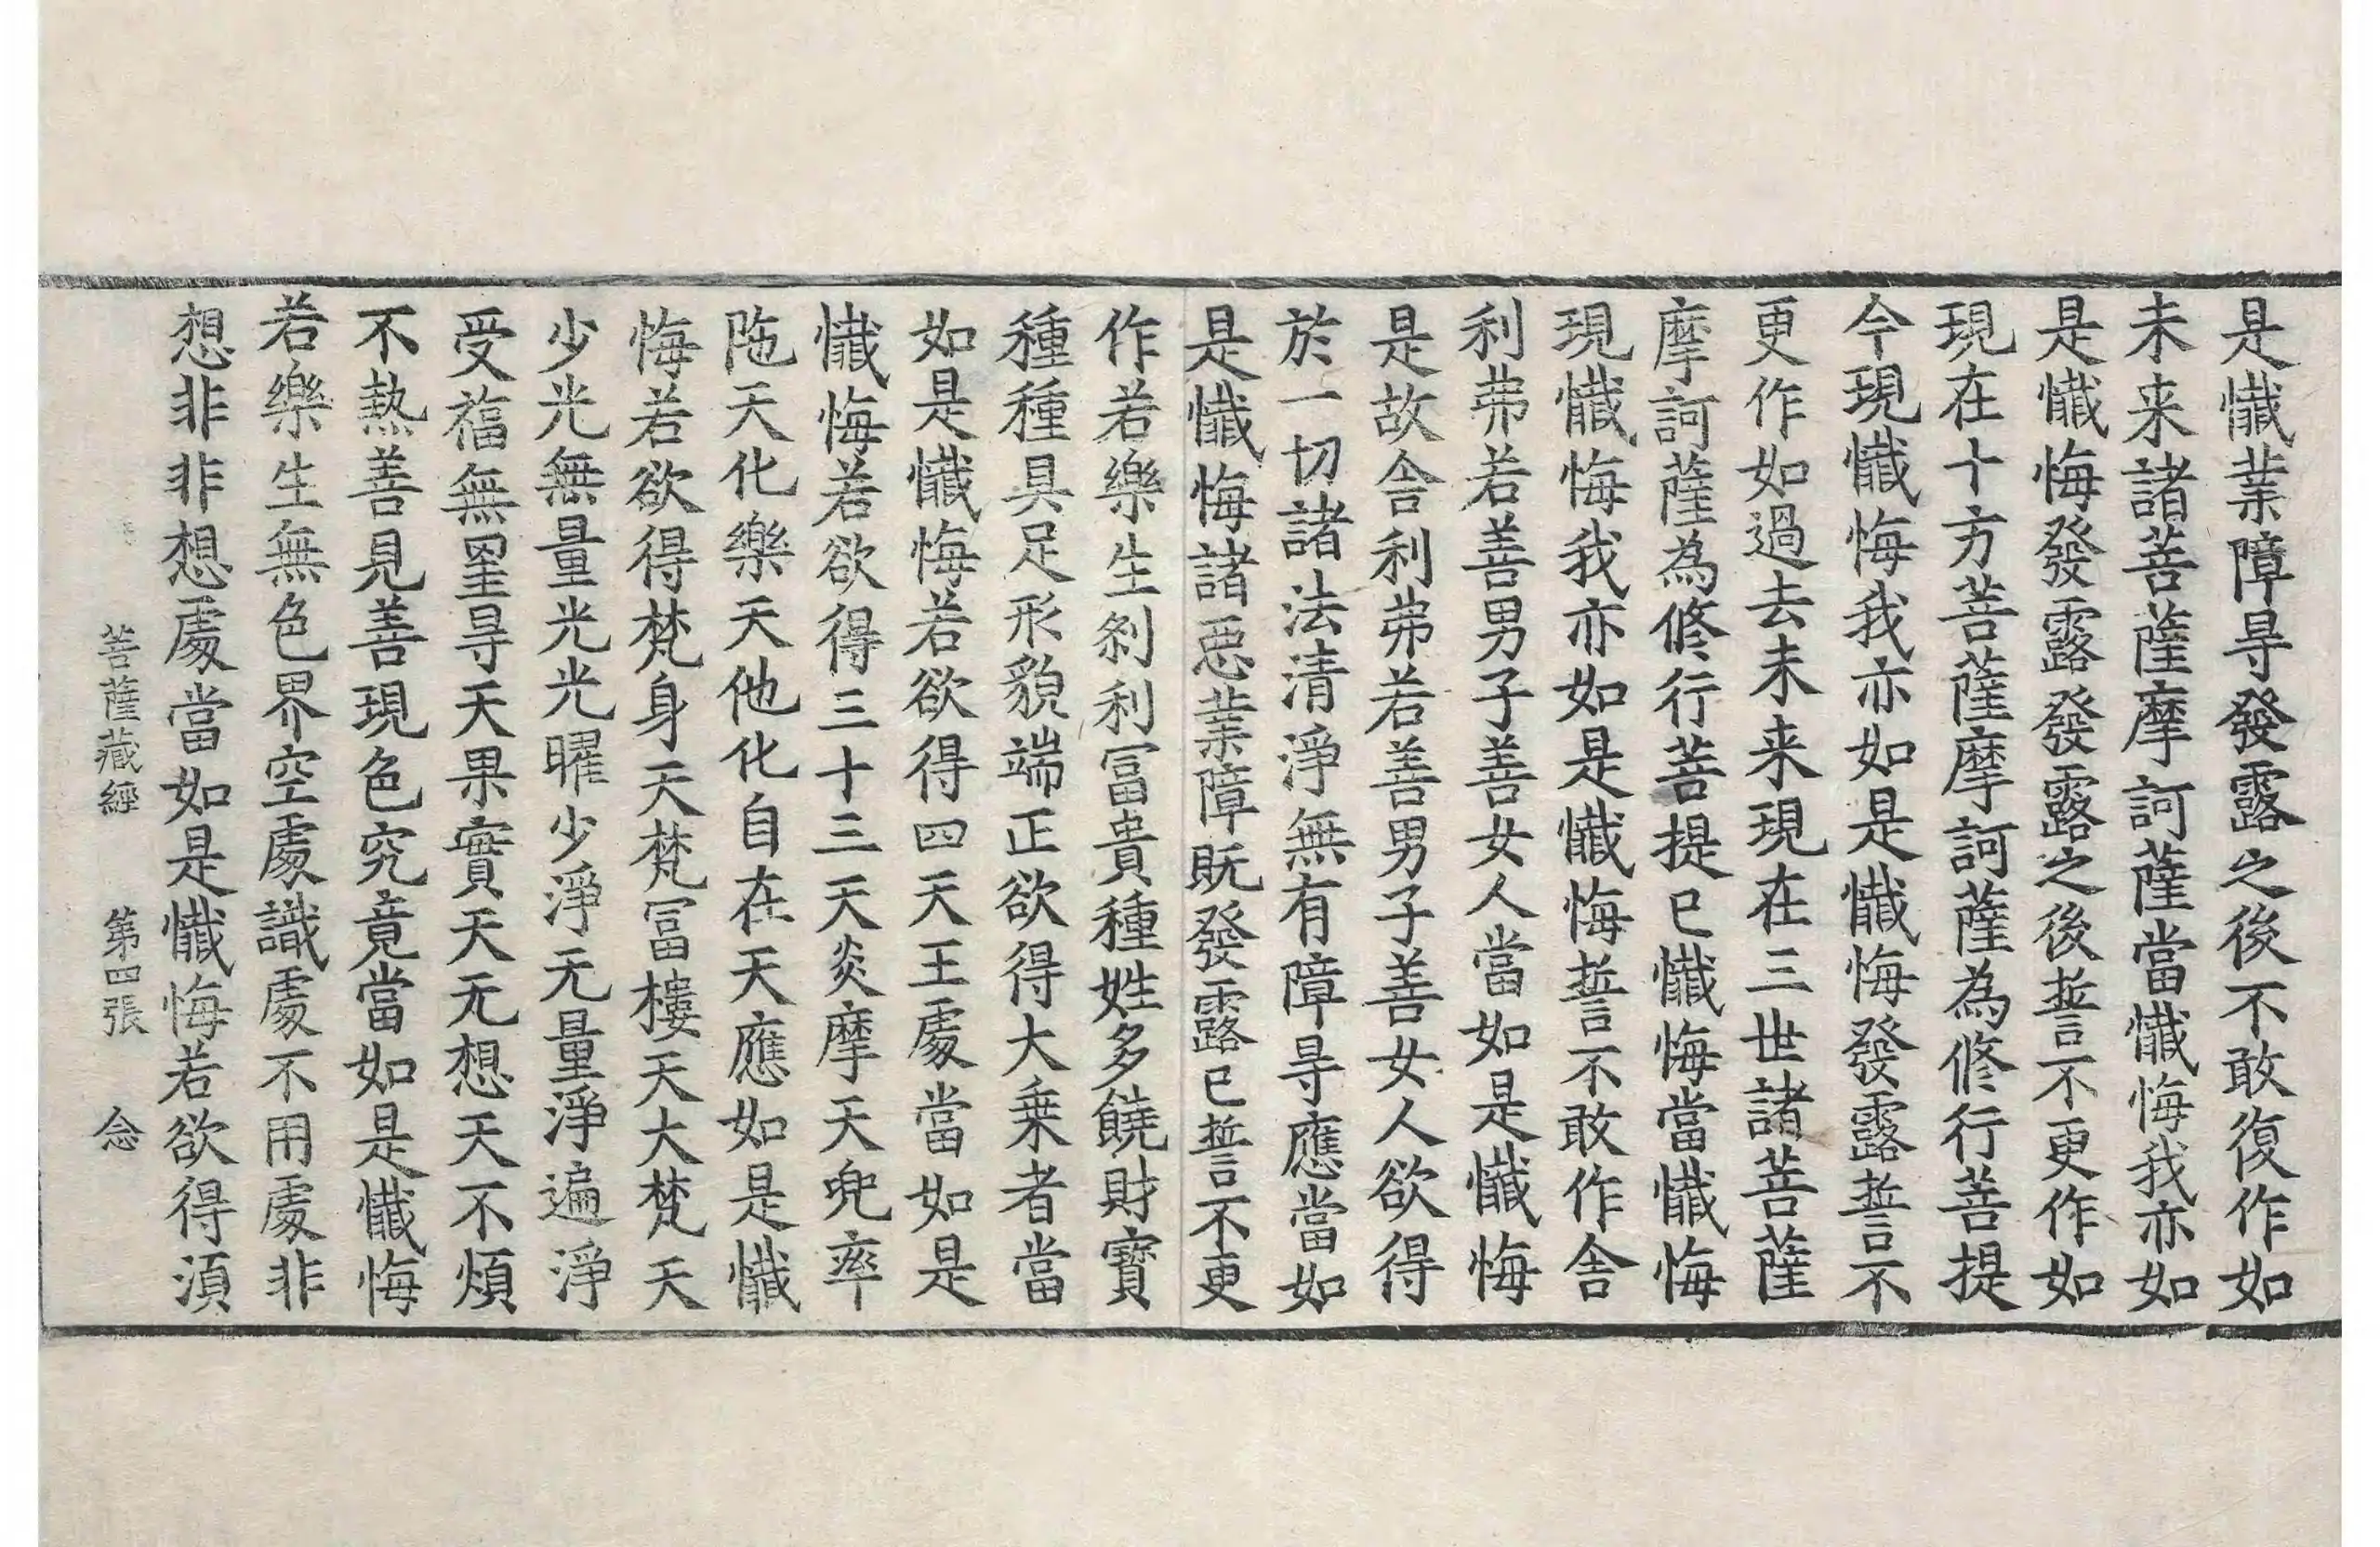 是懺業障㝵發露之後不敢復作如
未来諸菩薩摩訶薩當懺悔我亦如
是懺悔發露發露之後誓不更作如
現在十方菩薩摩訶薩為修行菩提
今現懺悔我亦如是懺悔發露誓不
更作如過去未来現在三世諸菩薩
摩訶薩為修行菩提已懺悔當懺悔
現懺悔我亦如是懺悔誓不敢作舎
利弗若善男子善女人當如是懺悔
是故舎利弗若善男子善女人欲得
於一切諸法清淨無有障㝵應當如
是懺悔諸惡業障既發露已誓不更
作若樂生剎利冨貴種姓多饒財寶
種種具足形貌端正欲得大乗者當
如是懺悔若欲得四天王處當如是
懺悔若欲得三十三天炎摩天兜率
陁天化樂天他化自在天應如是懺
悔若欲得梵身天梵冨樓天大梵天
少光無量光光曜少淨无量淨遍淨
受福無罣㝵天果實天无想天不煩
不熱善見善現色究竟當如是懺悔
若樂生無色界空處識處不用處非
想非非想處當如是懺悔若欲得湏
菩薩藏經 第四張 念